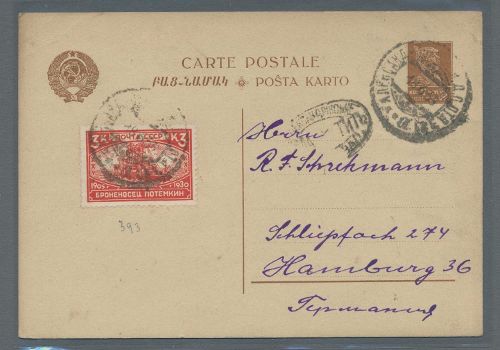 CARTE POSTALE
ԲԱՑ-ՆԱՄԱԿ ✻ POŜTA KARTO
3К ПОЧТА СССР К3
1905 1930
БРОНЕНОСЕЦ ПОТЕМКИН
393
Herrn
R. F. Sprekmann
Schliepfach 274
Hamburg 36
Германия